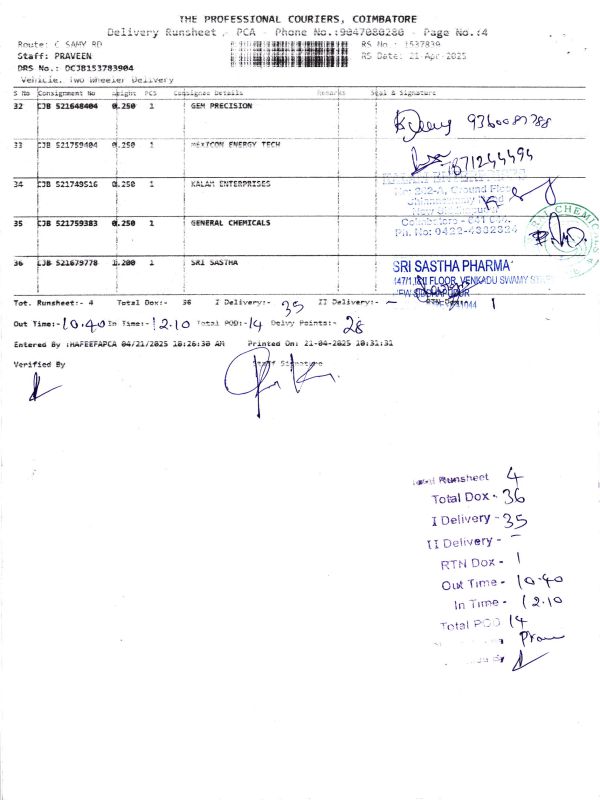 THE PROFESSIONAL COURIERS, COIMBATORE
Delivery Runsheet - PCA - Phone No.:9047080280 - Page No.:4
Route: C SAMY RD
RS No : 1537839
Staff: PRAVEEN
RS Date: 21-Apr-2025
DRS No.: DCJB153783904
Vehicle: Two Wheeler Delivery
S No Consignment No Weight PCS Consignee Details Remarks Seal & Signature
32 CJB 521648404 0.250 1 GEM PRECISION
9360087788
33 CJB 521759404 0.250 1 MEXICON ENERGY TECH
7871244494
34 CJB 521749516 0.250 1 KALAM ENTERPRISES
Ground Floor
Coimbatore
Ph. No: 0422-4382324
35 CJB 521759383 0.250 1 GENERAL CHEMICALS
36 CJB 521679778 1.200 1 SRI SASTHA
SRI SASTHA PHARMA
FLOOR, VENKADU SWAMY
Tot. Runsheet:- 4 Total Dox:- 36 I Delivery:- 35 II Delivery:- - 1
Out Time:- 10.40 In Time:- 12.10 Total POD:- 14 Delvy Points:- 28
Entered By :HAFEEFAPCA 04/21/2025 10:26:30 AM Printed On: 21-04-2025 10:31:31
Verified By
Staff Signature
Runsheet 4
Total Dox - 36
I Delivery - 35
II Delivery - -
RTN Dox - 1
Out Time - 10.40
In Time - 12.10
Total POD 14